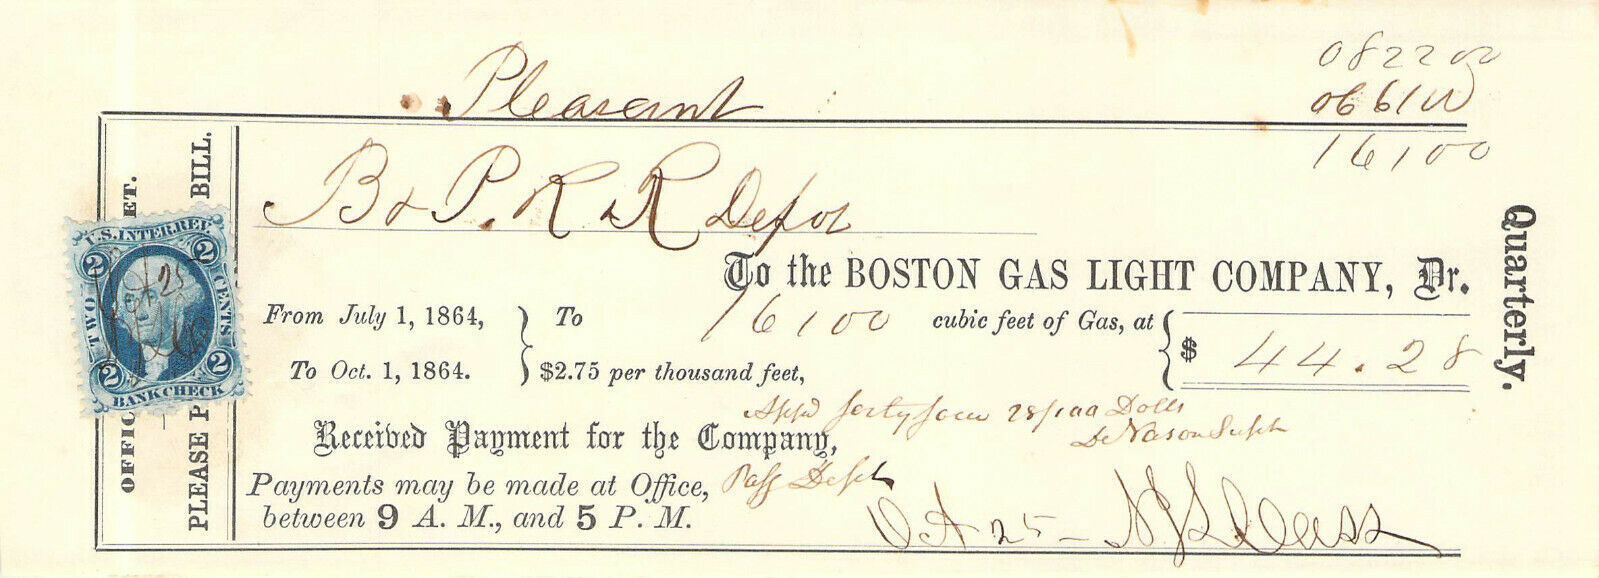 Pleasant
082200
06610
16100
B & P. R R Depot
To the BOSTON GAS LIGHT COMPANY, Dr.
From July 1, 1864,
To Oct. 1, 1864.
To 16100 cubic feet of Gas, at
$2.75 per thousand feet,
$ 44.28
Appd forty four 28/100 Dolls
D. Nason Supt
Received Payment for the Company,
Pass Dept
Payments may be made at Office,
between 9 A. M., and 5 P. M.
Oct 25
Quarterly.
OFFIC ET.
PLEASE P BILL.
U.S. INTER. REV.
2 2
TWO CENTS
2 2
BANK CHECK
Oct 25